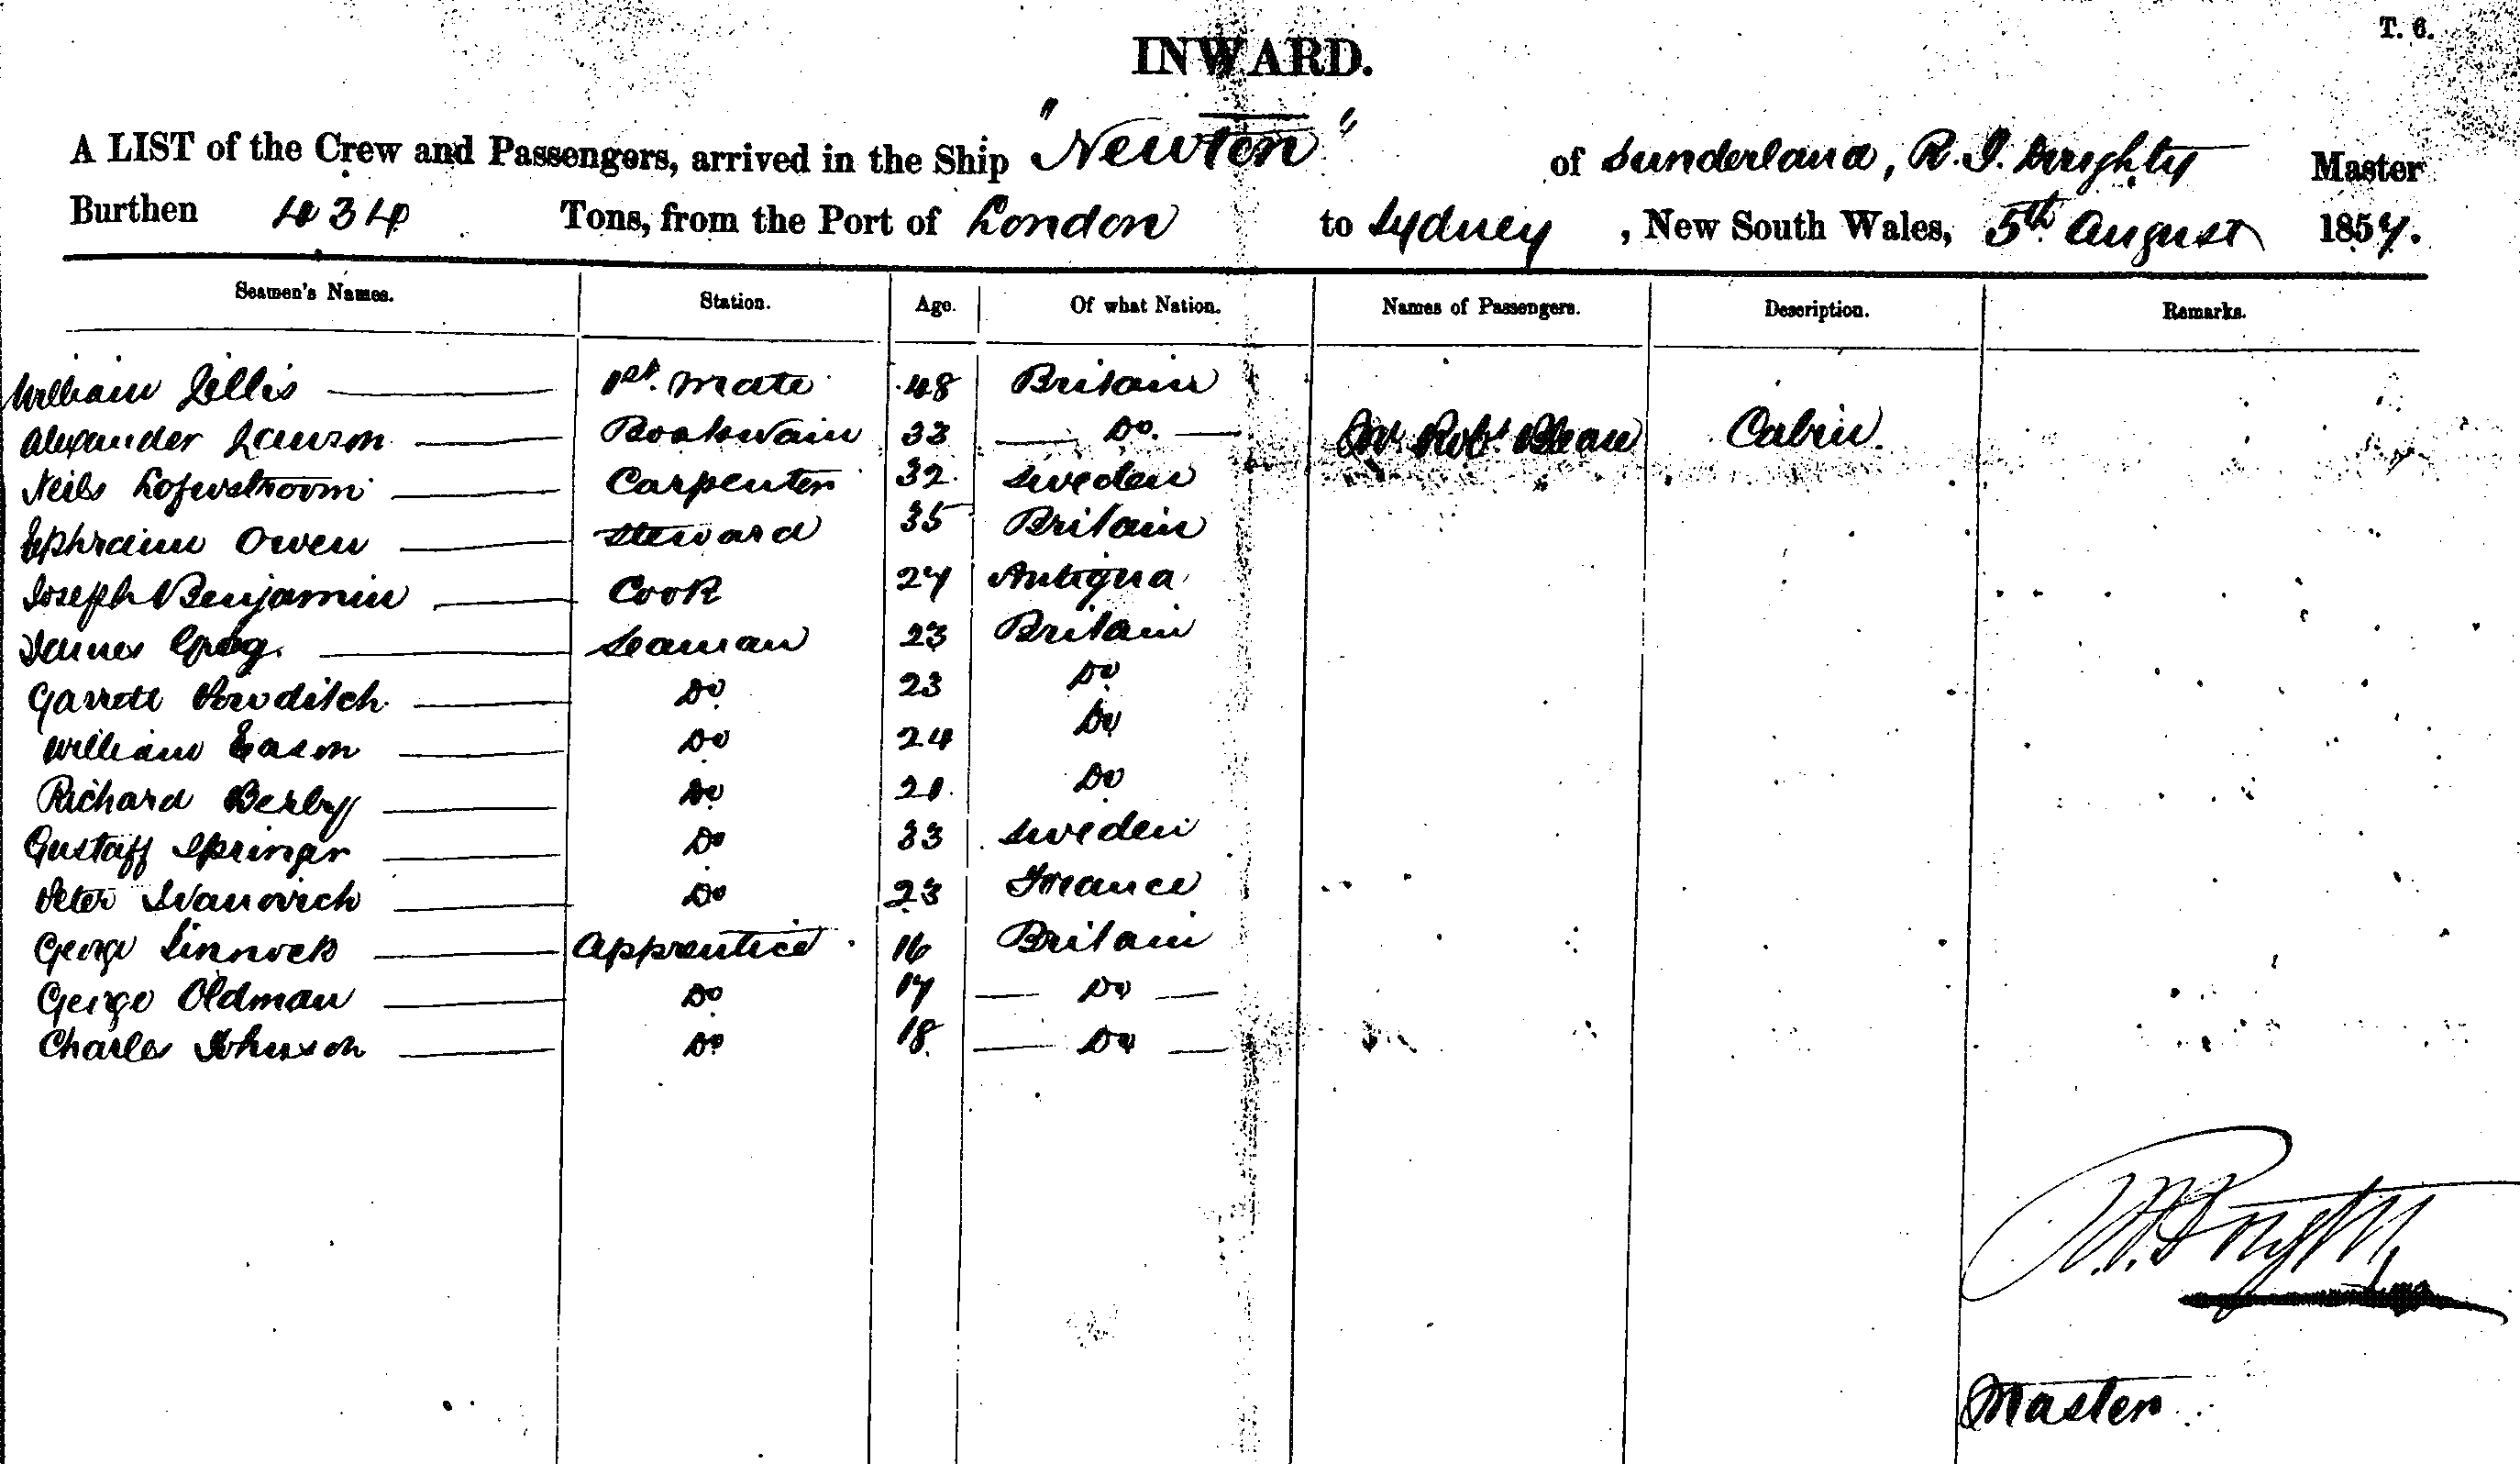 T. 6.
INWARD.
A LIST of the Crew and Passengers, arrived in the Ship "Newton" of Sunderland, R. I. Master
Burthen 434 Tons, from the Port of London to Sydney, New South Wales, 5th August 1857.
Seamen's Names. Station. Age. Of what Nation. Names of Passengers. Description. Remarks.
William 1st. Mate 48 Britain
Alexander Lawson Boatswain 33 Do. Mr. Robt. Cabin
Neils Lofwstroom Carpenter 32 Sweden
Ephraim Owen Steward 35 Britain
Joseph Benjamin Cook 27 Antigua
James Greg. Seaman 23 Britain
Garrett Do 23 Do
William Eason Do 24 Do
Richard Berby Do 20 Do
Gustaff Springer Do 33 Sweden
Peter Ivanovich Do 23 France
George Sinnock Apprentice 16 Britain
George Oldman Do 17 Do
Charles Johnson Do 18 Do
Master